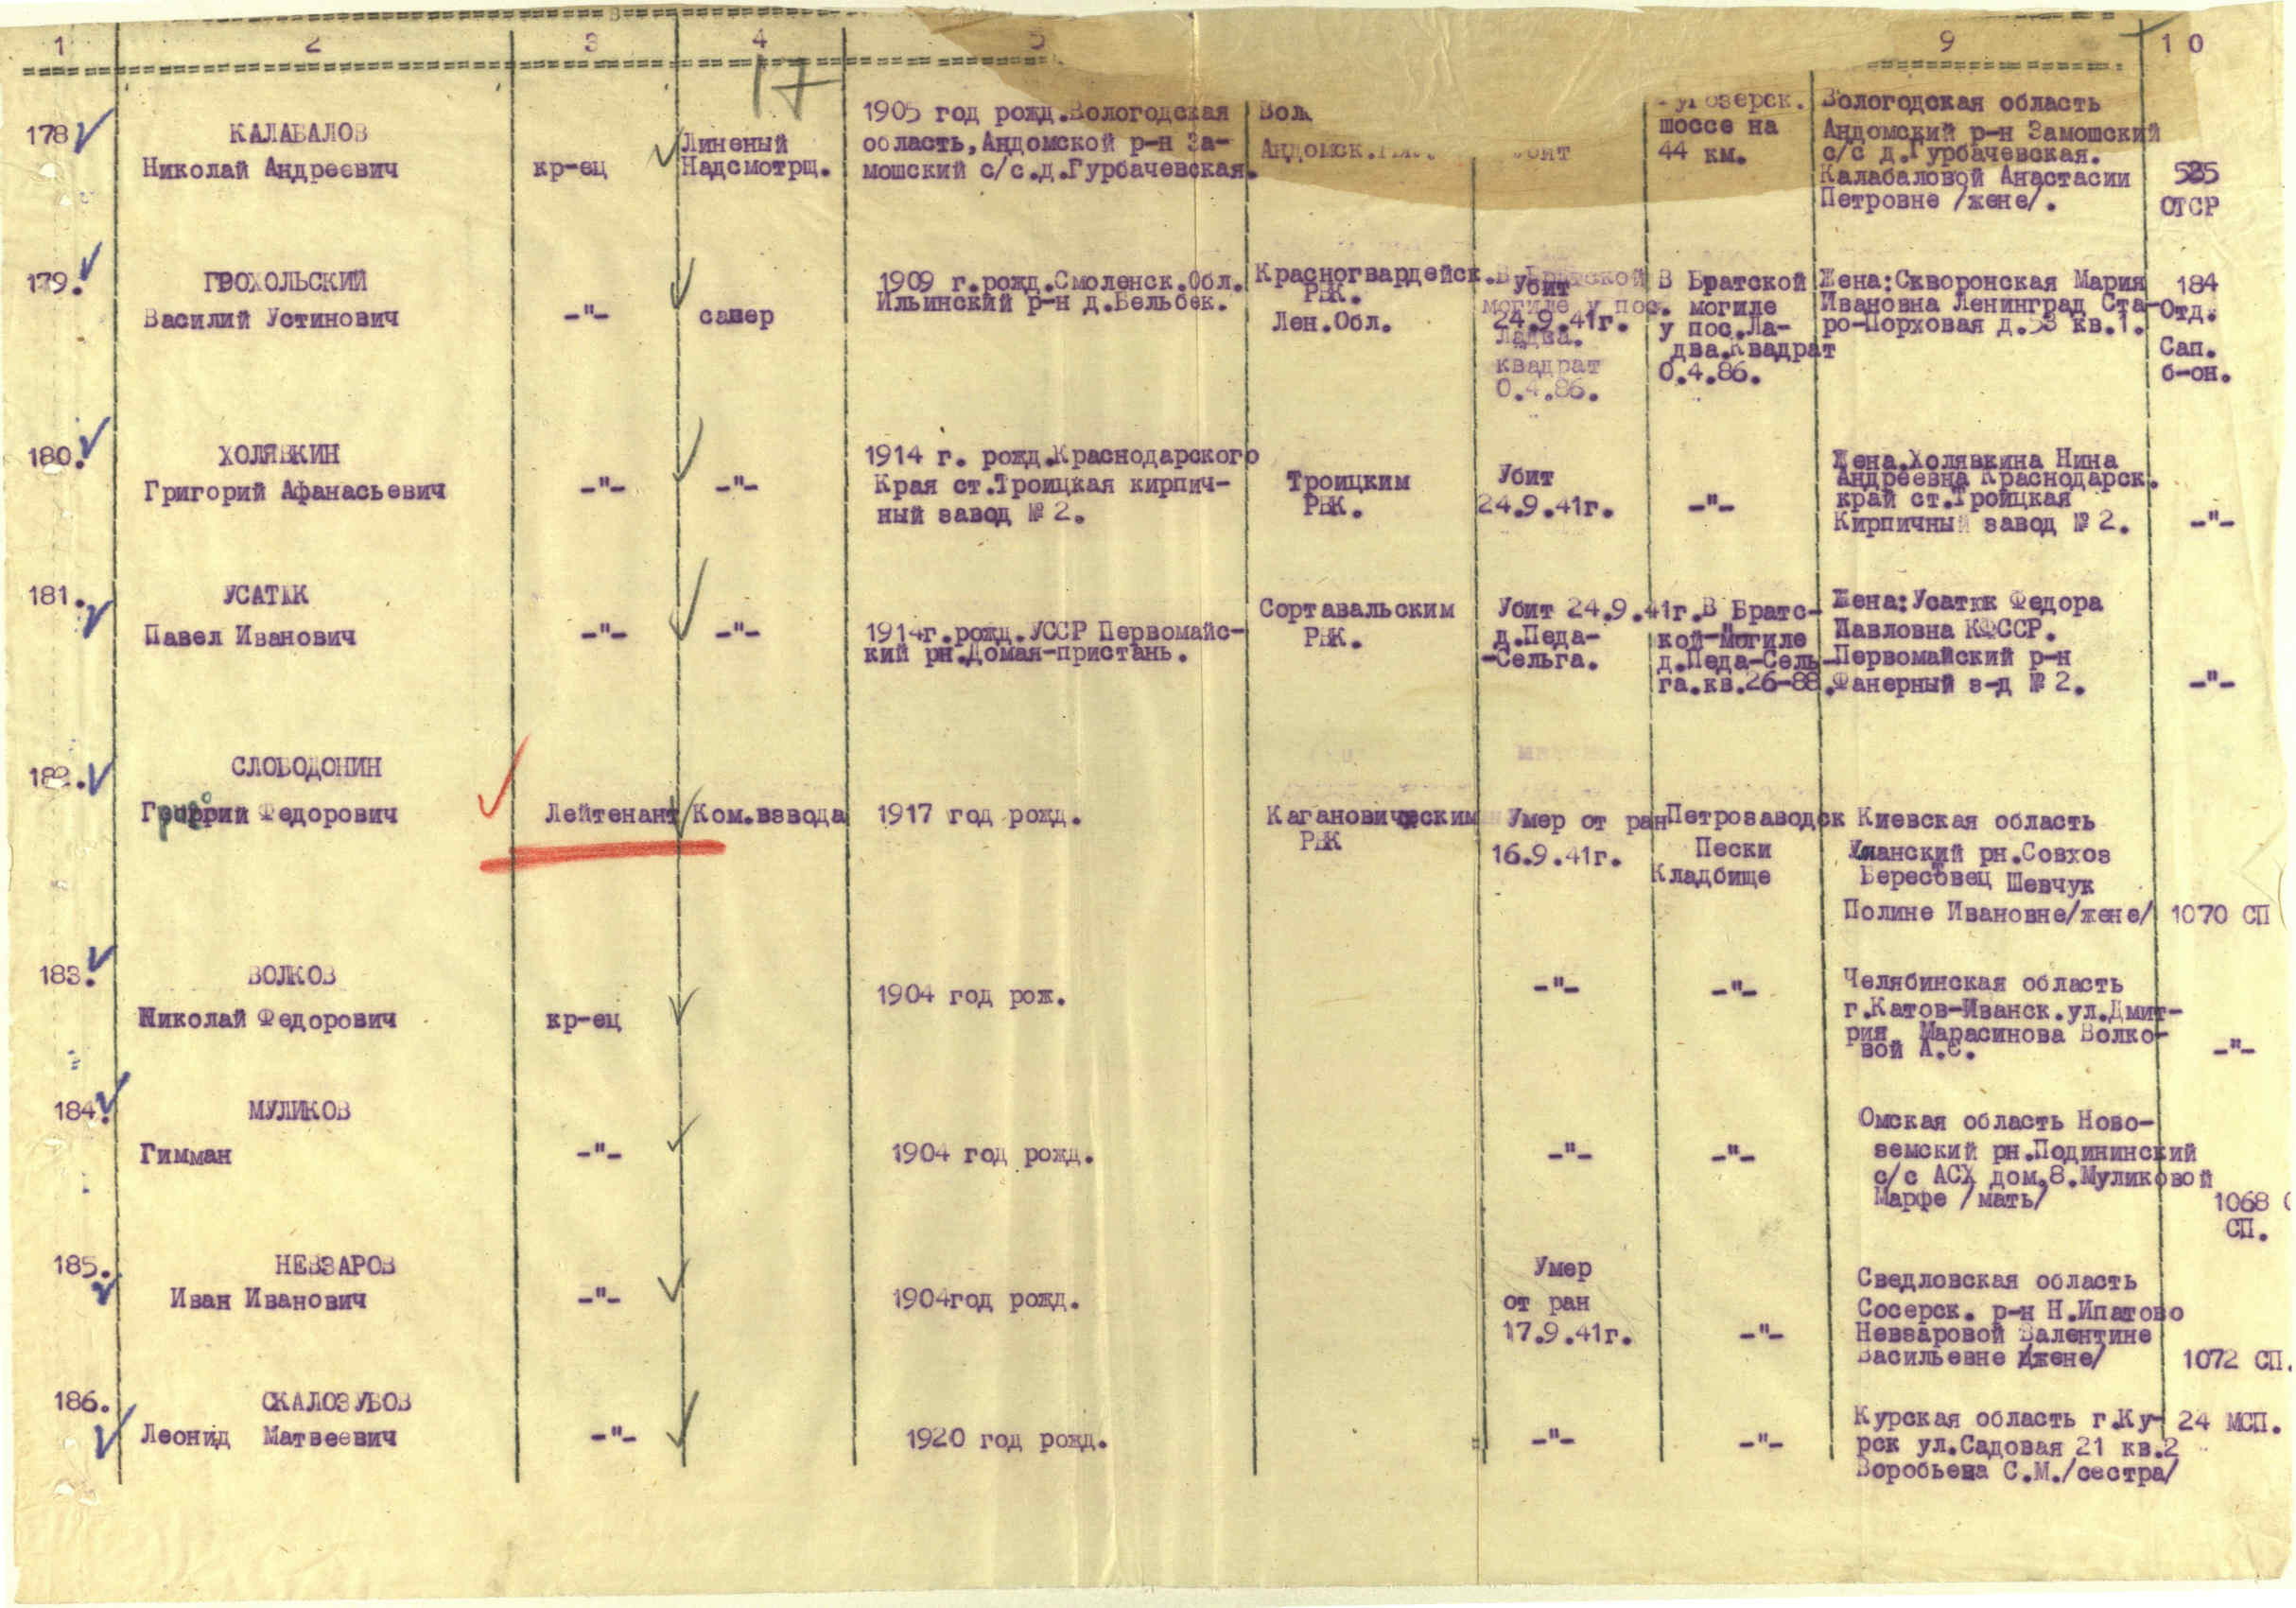 1 2 3 4 5 9 10
17
178
КАЛАБАЛОВ
Николай Андреевич
кр-ец
Линеный
Надсмотрщ.
1905 год рожд.Вологодская
область,Андомской р-н За-
мошский с/с.д.Гурбачевская.
Вол
Андомск.
шоссе на
44 км.
Вологодская область
Андомский р-н Замошский
с/с д.Гурбачевская.
Калабаловой Анастасии
Петровне /жене/.
585
ОТСР
179.
ГРОХОЛЬСКИЙ
Василий Устинович
-"-
сапер
1909 г.рожд.Смоленск.Обл.
Ильинский р-н д.Бельбек.
Красногвардейск.
РВК.
Лен.Обл.
Убит
24.9.41г.
Ладва.
квадрат
0.4.86.
В Братской
могиле
у пос.Ла-
два.Квадрат
0.4.86.
Жена:Скворонская Мария
Ивановна Ленинград Ста-
ро-Порховая д.53 кв.1.
184
Отд.
Сап.
б-он.
180.
ХОЛЯВКИН
Григорий Афанасьевич
-"-
-"-
1914 г. рожд.Краснодарского
Края ст.Троицкая кирпич-
ный завод № 2.
Троицким
РВК.
Убит
24.9.41г.
-"-
Жена.Холявкина Нина
Андреевна Краснодарск.
край ст.Троицкая
Кирпичный завод № 2.
-"-
181.
УСАТЮК
Павел Иванович
-"-
-"-
1914г.рожд.УССР Первомайс-
кий рн.Домая-пристань.
Сортавальским
РВК.
Убит 24.9.41г.
д.Педа-
-Сельга.
В Братс-
кой-Могиле
д.Педа-Сель-
га.кв.26-88.
Жена:Усатюк Федора
Павловна КФССР.
Первомайский р-н
Фанерный з-д № 2.
-"-
182.
СЛОБОДОНИН
Григорий Федорович
Лейтенант
Ком.взвода
1917 год рожд.
Кагановическим
РВК
Умер от ран
16.9.41г.
Петрозаводск
Пески
Кладбище
Киевская область
Уманский рн.Совхоз
Бересговец Шевчук
Полине Ивановне/жене/
1070 СП
183.
ВОЛКОВ
Николай Федорович
кр-ец
1904 год рож.
-"-
-"-
Челябинская область
г.Катов-Иванск.ул.Дмит-
рия Марасинова Волко-
вой А.С.
-"-
184.
МУЛИКОВ
Гимман
-"-
1904 год рожд.
-"-
-"-
Омская область Ново-
земский рн.Подининский
с/с АСХ дом.8.Муликовой
Марфе /мать/
1068
СП.
185.
НЕВЗАРОВ
Иван Иванович
-"-
1904год рожд.
Умер
от ран
17.9.41г.
-"-
Сведловская область
Сосерск. р-н Н.Ипатово
Невзаровой Валентине
Васильевне /жене/
1072 СП.
186.
СКАЛОЗУБОВ
Леонид Матвеевич
-"-
1920 год рожд.
-"-
-"-
Курская область г.Ку-
рск ул.Садовая 21 кв.2
Воробьева С.М./сестра/
24 МСП.